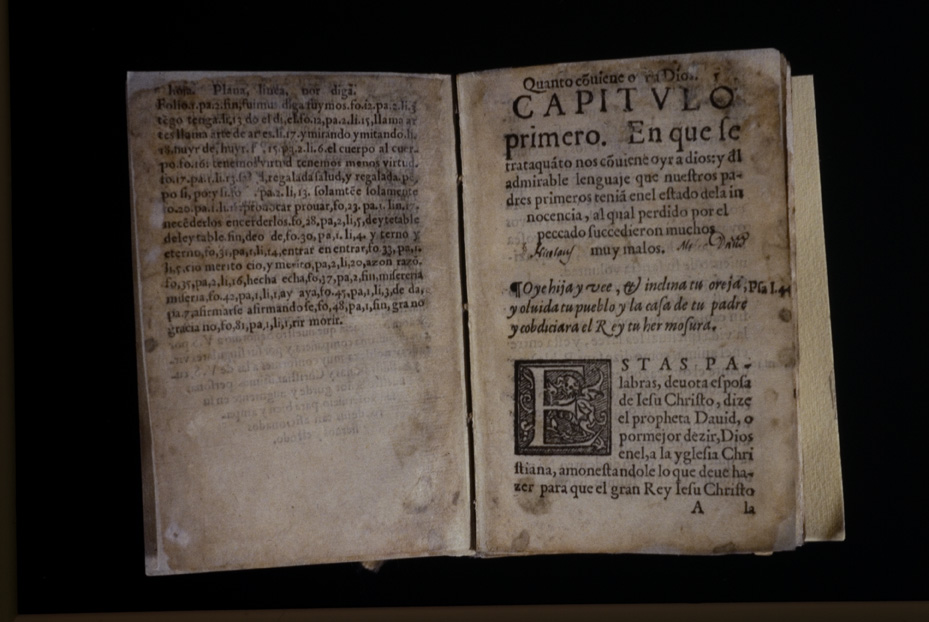 hoja. Plana, linea, por diga.
Folio.1.pa.2.fin, fuimus diga fuymos.fo.12.pa.2.li.5
tẽgo tenga.li,13 do el di, el.fo.12,pa.2.li.15,llama ar
tes llama arte de artes.li.17.y mirando y mitando.li.
18.huyr de, huyr. 15.pa.2.li.6.el cuerpo al cuer-
po.fo.16: tenemos virtud tenemos menos virtud.
fo.17.pa.1.li.13. regalada salud, y regalada.
po si, po: y si.fo .pa.2.li,13. solamtẽe solamente
.0.20.pa.1.li. prouocar prouar,fo,23. pa.1. lin.
necẽderlos encerderlos.fo,28,pa,2,li,5,deytetable
deleytable.fin,deo de,fo.30,pa,1.li,4. y terno y
eterno,fo,31,pa,1,li,14,entrar en entrar,fo 33,pa,
li.5,cio merito cio,y merito,pa,2,li,20,azon razõ.
fo,35,pa,2,li,16,hecha echa,fo,37,pa,2,fin,misereria
miseria,fo.42,pa,1,li,1,ay aya,fo.45,pa,1,li,3,de da,
pa.7,afirmarse afirmandose,fo,48,pa,1,fin,gra no
gracia no,fo,81,pa,1,li,1,rir morir.
Quanto cõuiene o ra Dios.
CAPITVLO
primero. En que se
trata quãto nos cõuiene oyr a dios: y dl
admirable lenguaje que nuestros pa-
dres primeros teniã enel estado dela in
nocencia, al qual perdido por el
peccado succedieron muchos
muy malos.
¶Oye hija y vee, & inclina tu oreja, Psa 1.44
y oluida tu pueblo y la casa de tu padre
y cobdiciara el Rey tu hermosura.
ESTAS PA-
labras, deuota esposa
de Iesu Christo, dize
el propheta Dauid, o
por mejor dezir, Dios
enel, a la yglesia Chri
stiana, amonestandole lo que deue ha-
zer para que el gran Rey Iesu Christo
A la